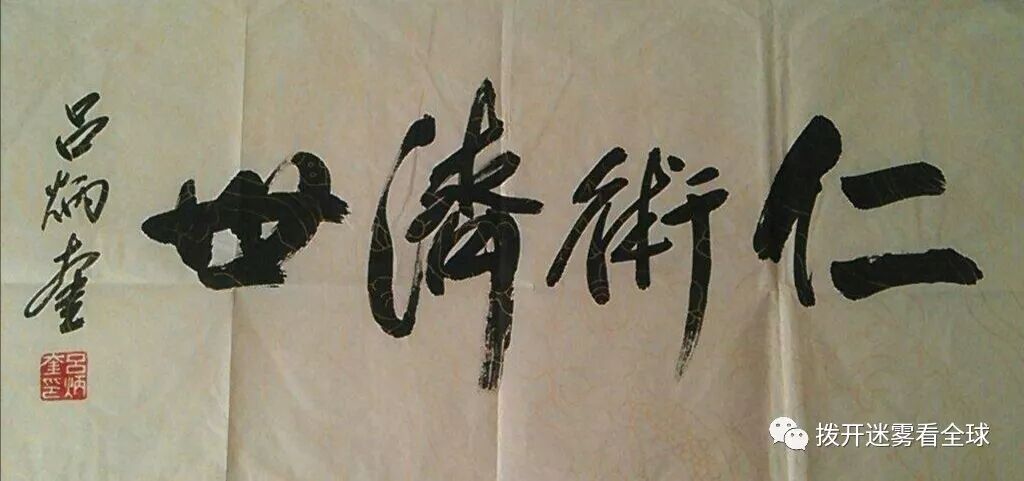 仁術濟世
吕炳奎
吕炳奎印
拨开迷雾看全球